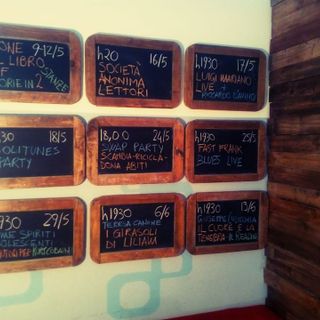 ONE 9-12/5
L LIBRO
F STANZE
ORIE IN 2
h20 16/5
SOCIETÀ
ANONIMA
LETTORI
h1930 17/5
LUIGI MARIANO
LIVE +
30 18/5
OLITUNES
PARTY
18,00 24/5
SWAP PARTY
SCAMBIA-RICICLA-
DONA ABITI
h1930 25/5
FAST FRANK
BLUES LIVE
1930 29/5
SPIRITI
OLESCENTI
h1930 6/6
TERESA
I GIRASOLI
DI LILIANA
h1930 13/6
GIUSEPPE
IL CUORE E LA
TENEBRA